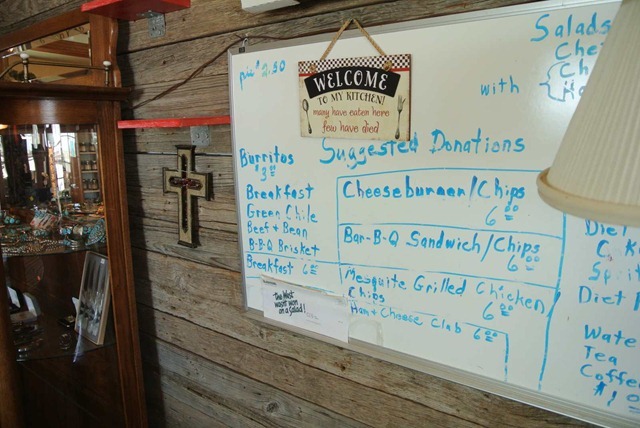 pie $2.50
WELCOME
TO MY KITCHEN!
many have eaten here
few have died
Salads
with
Suggested Donations
Burritos
$3.00
Breakfast
Green Chile
Beef & Bean
B-B-Q Brisket
Breakfast 6.00
Cheeseburger/Chips
6.00
Bar-B-Q Sandwich/Chips
6.00
Mesquite Grilled Chicken
Chips 6.00
Ham & Cheese Club 6.00
the West
wasn't won
on a salad!
Diet
Diet
Tea